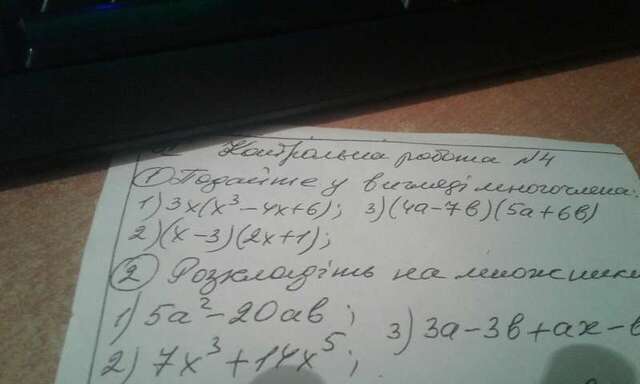 Контрольна робота №4
① Подайте у вигляді многочлена:
1) 3x(x³-4x+6); 3) (4a-7b)(5a+6b)
2) (x-3)(2x+1);
② Розкладіть на множники
1) 5a²-20ab; 3) 3a-3b+ax-b
2) 7x³+14x⁵;